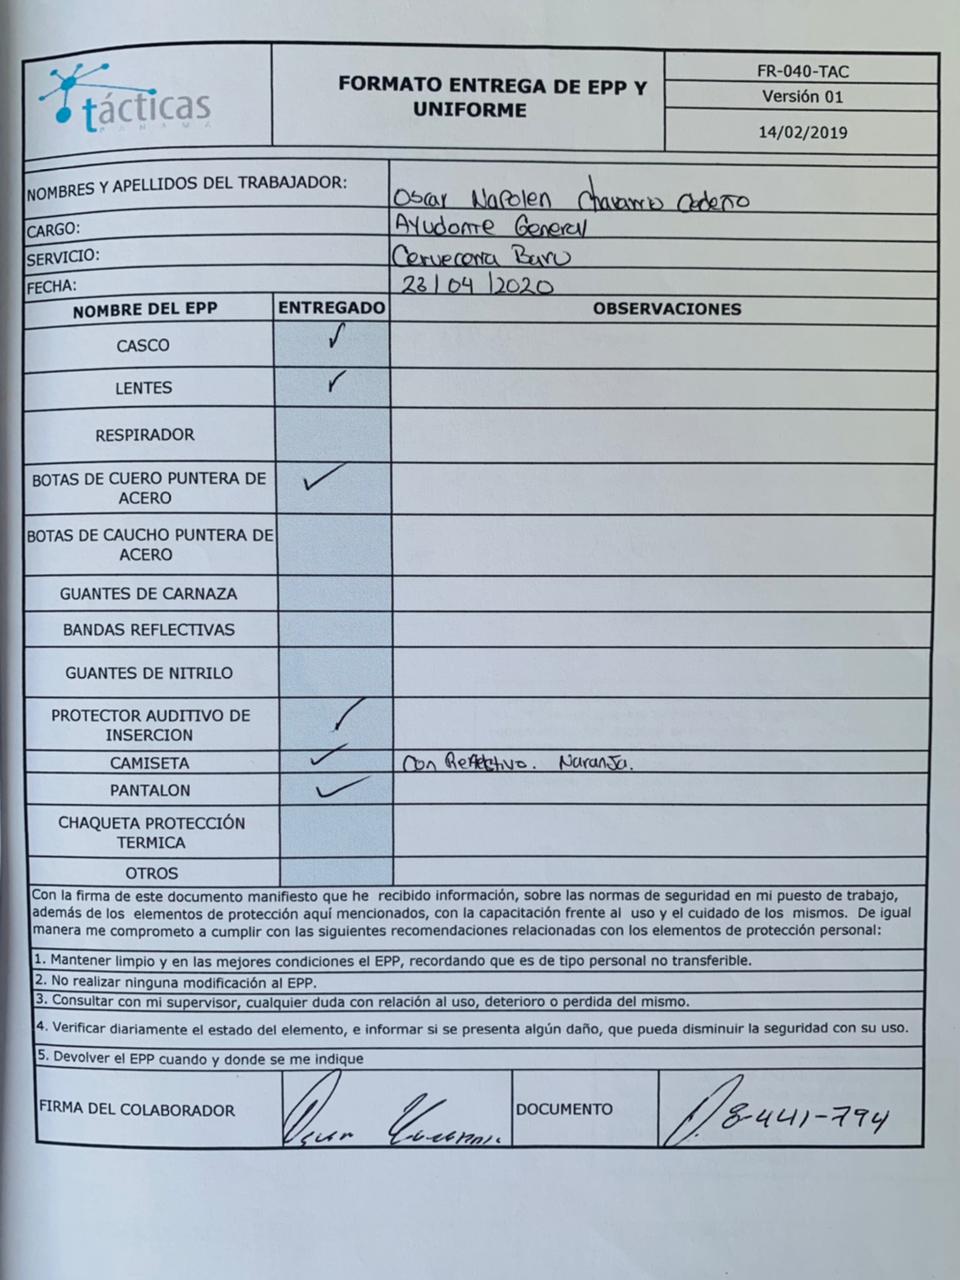 tácticas
PANAMÁ
FORMATO ENTREGA DE EPP Y
UNIFORME
FR-040-TAC
Versión 01
14/02/2019
NOMBRES Y APELLIDOS DEL TRABAJADOR: Oscar Napolen Chavarro Cedeño
CARGO: Ayudante General
SERVICIO: Cerveceria Baru
FECHA: 23/04/2020
NOMBRE DEL EPP ENTREGADO OBSERVACIONES
CASCO ✓
LENTES ✓
RESPIRADOR
BOTAS DE CUERO PUNTERA DE
ACERO ✓
BOTAS DE CAUCHO PUNTERA DE
ACERO
GUANTES DE CARNAZA
BANDAS REFLECTIVAS
GUANTES DE NITRILO
PROTECTOR AUDITIVO DE
INSERCION ✓
CAMISETA ✓ Con Reflectivo. Naranja.
PANTALON ✓
CHAQUETA PROTECCIÓN
TERMICA
OTROS
Con la firma de este documento manifiesto que he recibido información, sobre las normas de seguridad en mi puesto de trabajo,
además de los elementos de protección aquí mencionados, con la capacitación frente al uso y el cuidado de los mismos. De igual
manera me comprometo a cumplir con las siguientes recomendaciones relacionadas con los elementos de protección personal:
1. Mantener limpio y en las mejores condiciones el EPP, recordando que es de tipo personal no transferible.
2. No realizar ninguna modificación al EPP.
3. Consultar con mi supervisor, cualquier duda con relación al uso, deterioro o perdida del mismo.
4. Verificar diariamente el estado del elemento, e informar si se presenta algún daño, que pueda disminuir la seguridad con su uso.
5. Devolver el EPP cuando y donde se me indique
FIRMA DEL COLABORADOR Oscar DOCUMENTO 8-441-794